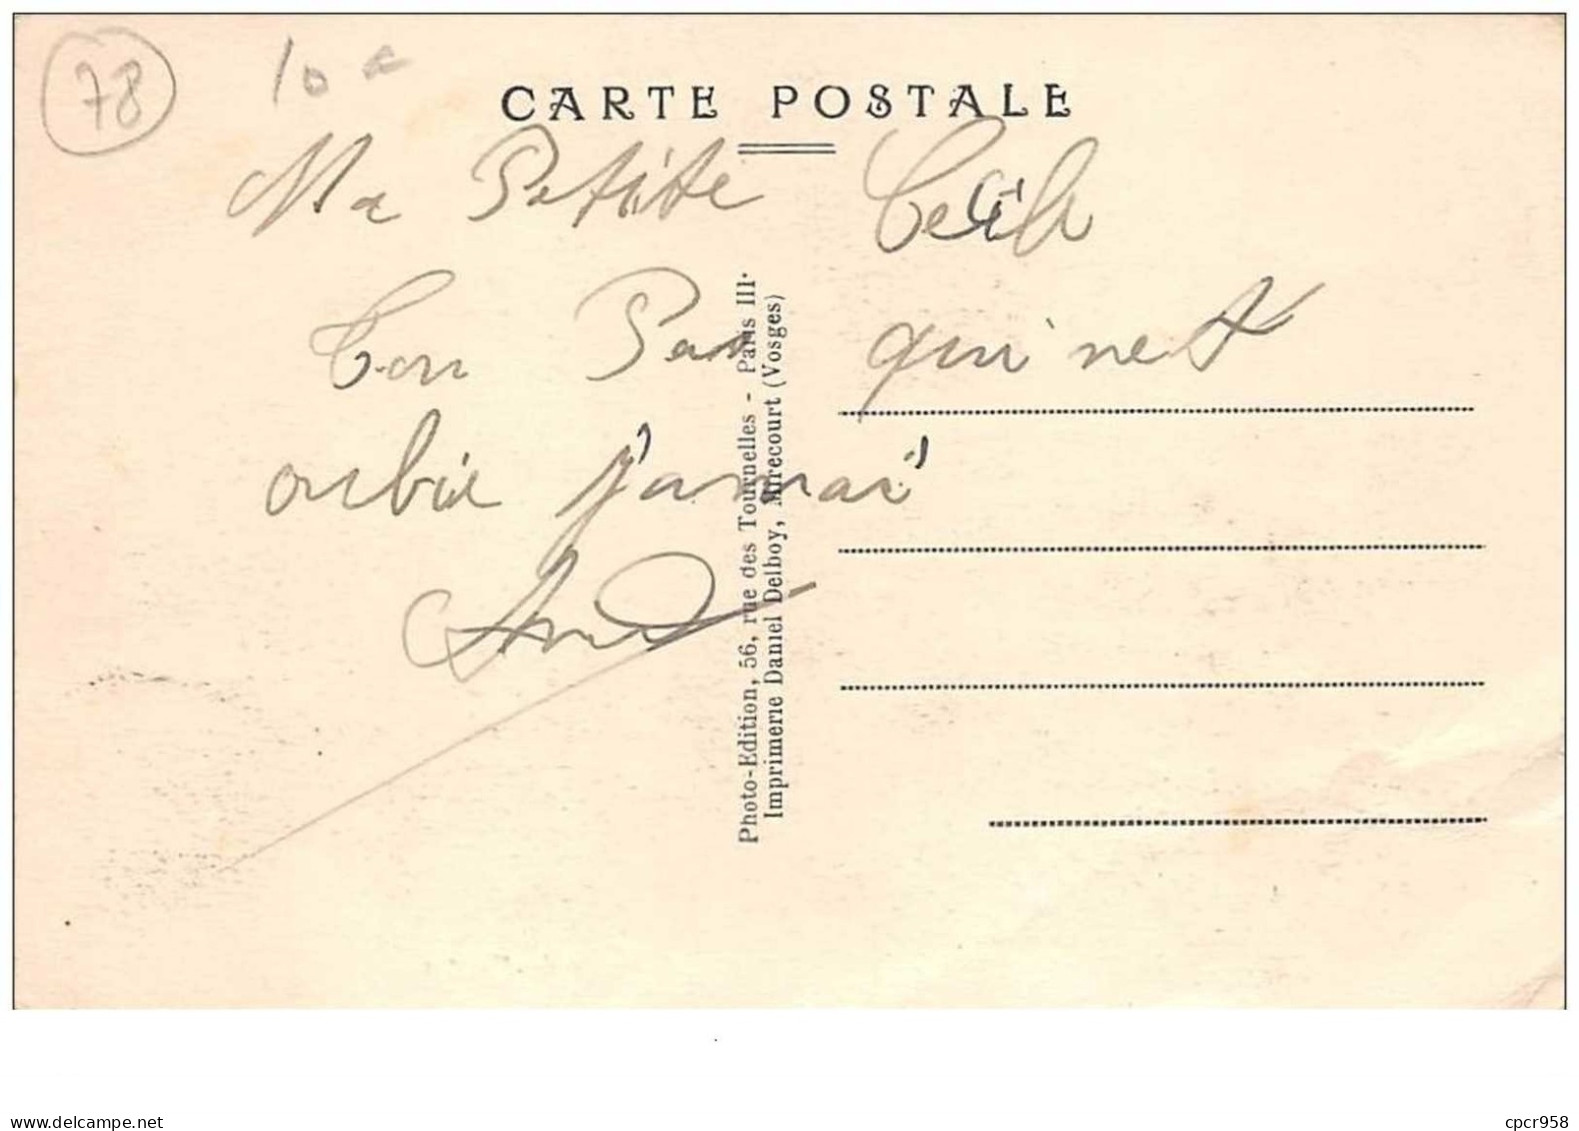 78
10 €
CARTE POSTALE
Ma Petite Cecile
Ton Papa qui net
oublie jamai
Photo-Edition, 56, rue des Tournelles - Paris III.
Imprimerie Daniel Delboy, Mirecourt (Vosges)
delcampe.net
cpcr958